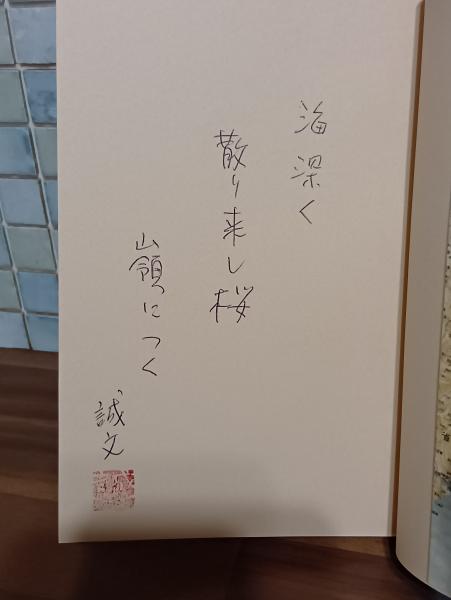 海深く
散り来し桜
山領につく
誠文